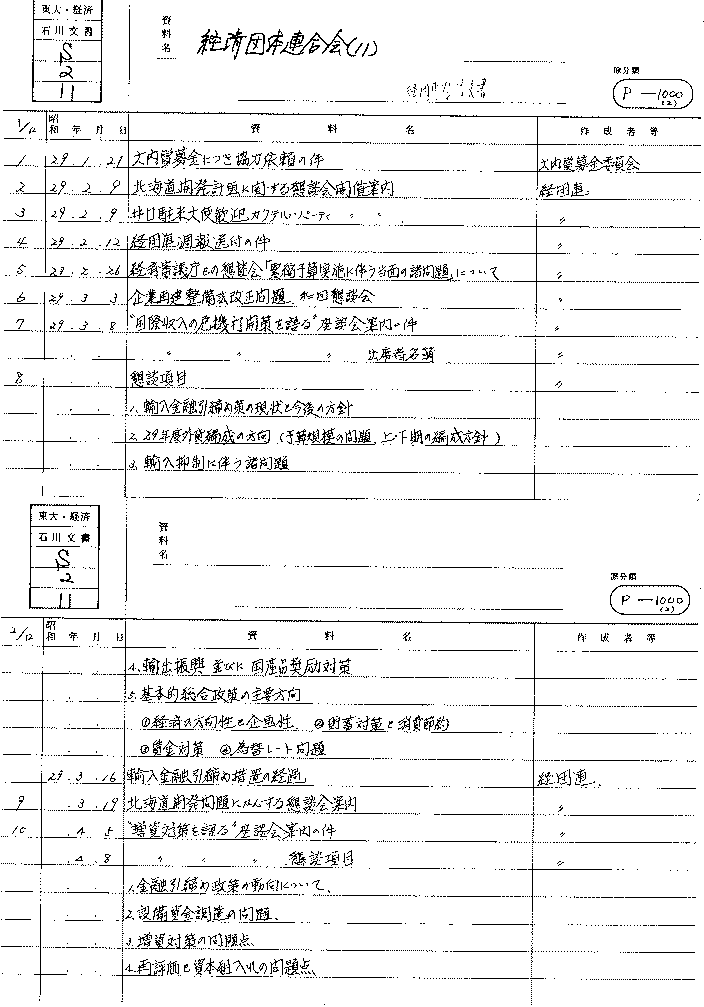 東大・経済
石川文書
S2
11
資料名
経済団体連合会(11)
原分類
P-1000
(2)
1/12 昭和 年 月 日 資料名 作成者等
1 29.1.21 文内賞募金につき協力依頼の件 文内賞募金委員会
2 29.2.9 北海道開発計画に関する懇談会開催案内 経団連
3 29.2.9 井口駐米大使歓迎カクテル・パーティ 〃 〃 〃
4 29.2.12 経団連週報送付の件 〃
5 29.2.26 経済審議庁との懇談会「緊縮予算実施に伴う当面の諸問題」について 〃
6 29.3.3 企業再建整備法改正問題 懇談会 〃
7 29.3.8 "国際収入の危機打開策を語る"座談会案内の件 〃
〃 〃 〃 出席者名簿 〃
8 懇談項目 〃
1.輸入金融引締め策の現状と今後の方針
2.29年度外貨編成の方向(予算規模の問題、上下期の編成方針)
3.輸入抑制に伴う諸問題
東大・経済
石川文書
S2
11
資料名
原分類
P-1000
(2)
2/12 昭和 年 月 日 資料名 作成者等
4.輸出振興並びに国産品奨励対策
5.基本的総合政策の主要方向
①経済の方向性と企画性 ②貯蓄対策と消費節約
③賃金対策 ④為替レート問題
29.3.16 輸入金融引締め措置の経過 経団連
9 .3.19 北海道開発問題にかんする懇談会案内 〃
10 .4.5 "増資対策を語る"座談会案内の件 〃
.4.8 〃 〃 〃 懇談項目 〃
1.金融引締め政策の動向について、
2.設備資金調達の問題、
3.増資対策の問題点、
4.再評価と資本組入れの問題点、